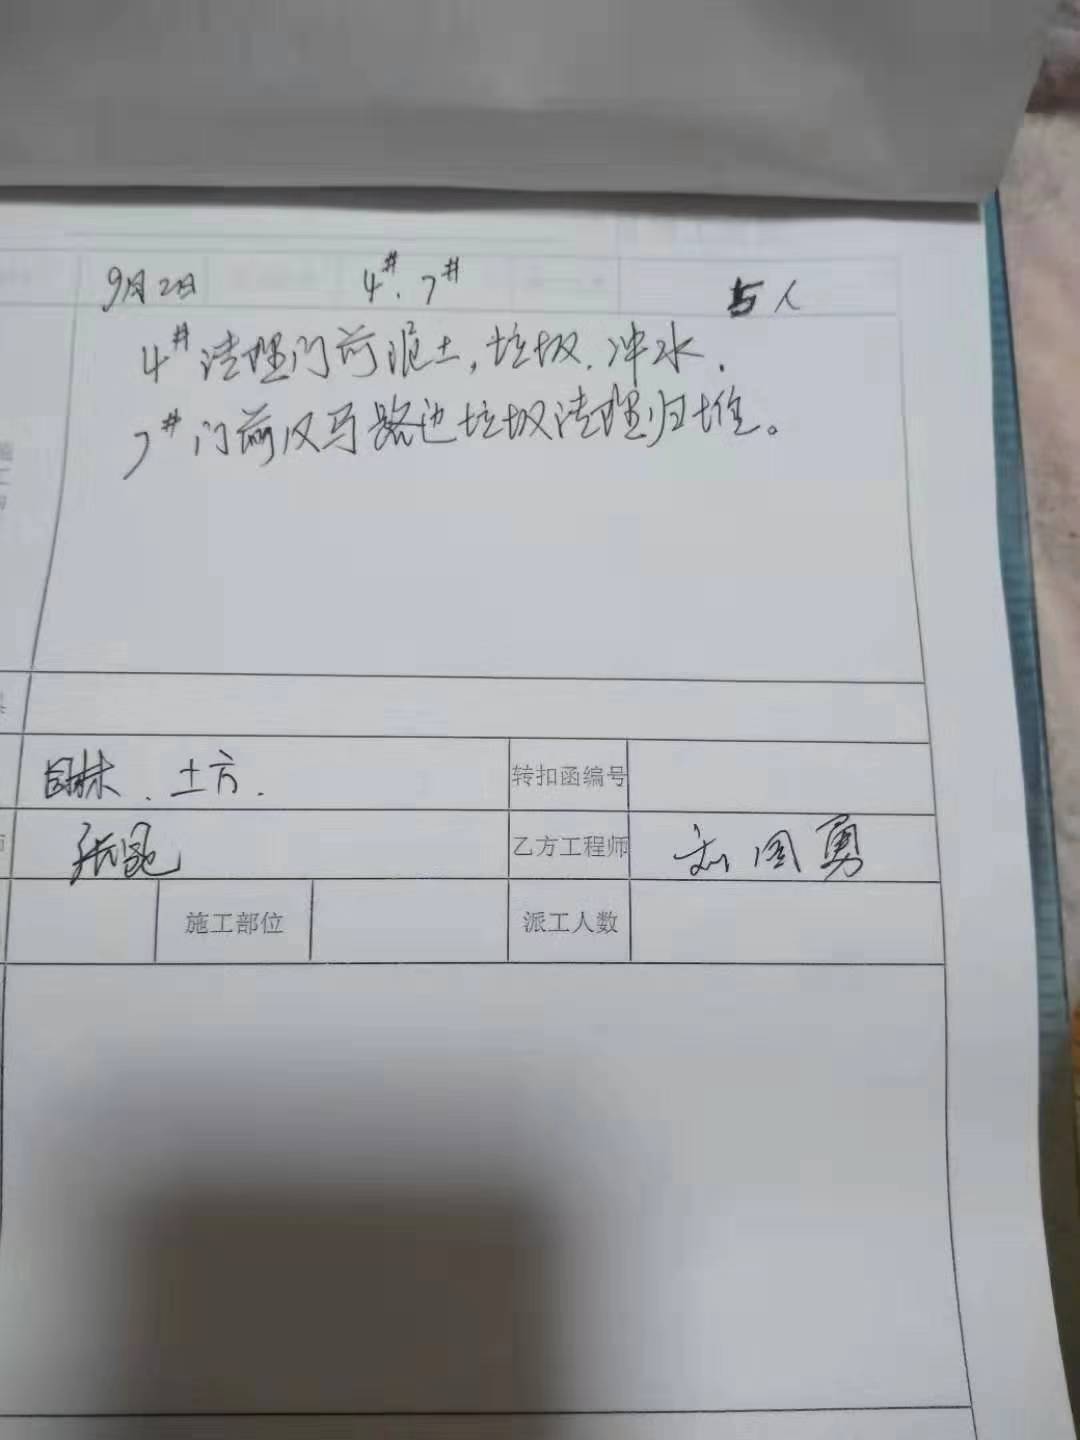 9月2日 4#、7# 5人
4#清理门前泥土,垃圾.冲水.
7#门前及马路边垃圾清理归堆。
园林、土方. 转扣函编号
乙方工程师 刘国勇
施工部位 派工人数